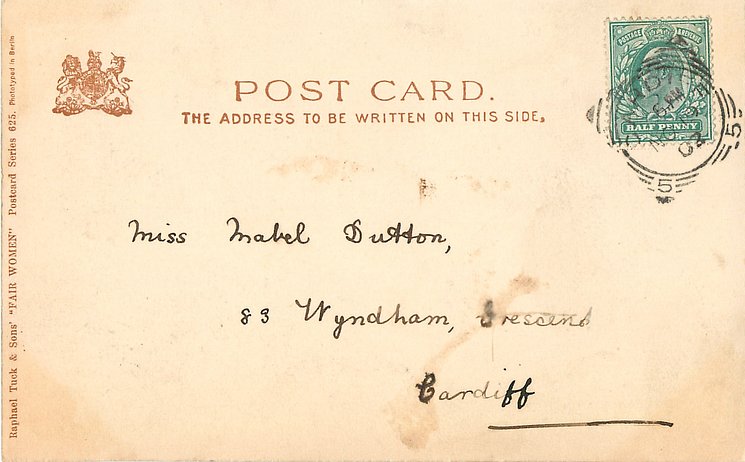 POST CARD.
THE ADDRESS TO BE WRITTEN ON THIS SIDE.
POSTAGE REVENUE
HALF PENNY
5
5
02
Miss Mabel Dutton,
83 Wyndham, Crescent
Cardiff
Raphael Tuck & Sons' "FAIR WOMEN" Postcard Series 625. Phototyped in Berlin